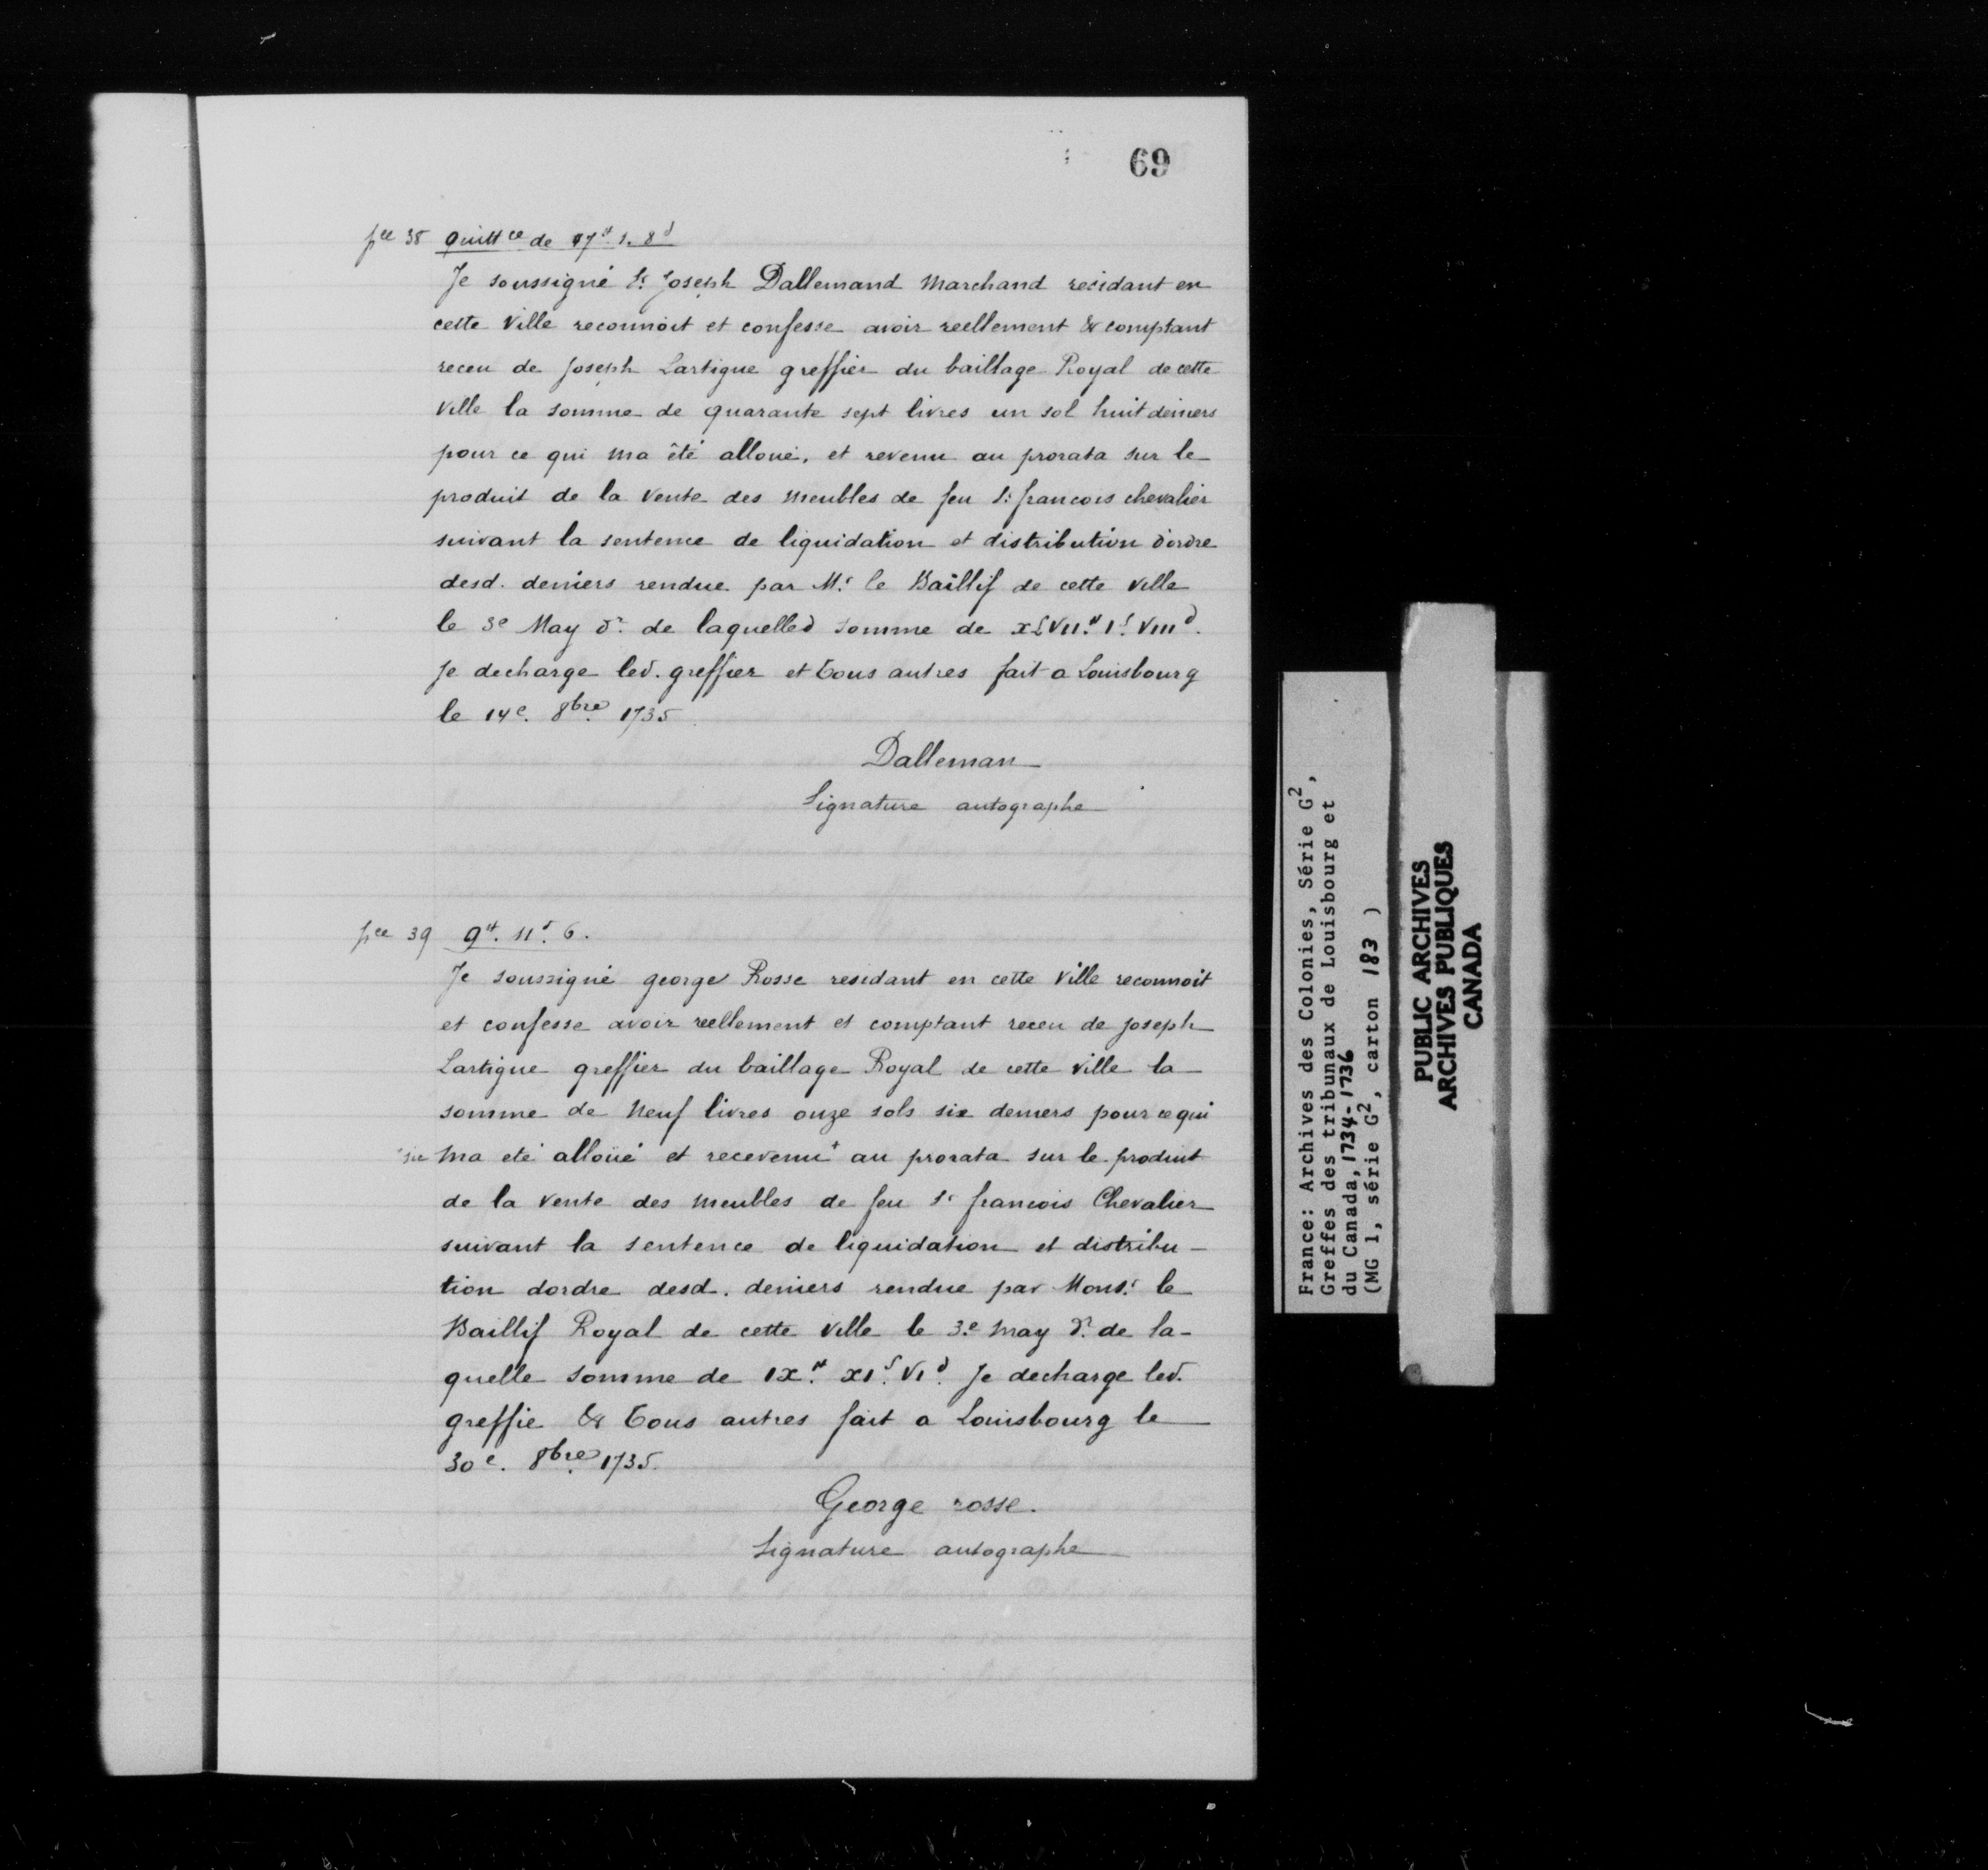 69
pce 38 quittce de 47# 1. 8d
Je soussigné Sr Joseph Dallemand Marchand residant en
cette Ville reconnoit et confesse avoir reellement & comptant
receu de Joseph Lartigue greffier du baillage Royal de cette
Ville la somme de quarante sept livres un sol huit deniers
pour ce qui ma êté alloué, et revenu au prorata sur le
produit de la vente des meubles de feu Sr francois chevalier
suivant la sentence de liquidation et distribution dordre
desd. deniers rendue par Mr le Baillif de cette Ville
le 3e May dr de laquelled somme de xLVII# IS VIIId.
Je decharge led. greffier et tous autres fait a Louisbourg
le 14e. 8bre 1735
Dalleman
Signature autographe
pce 39 9#. 11s. 6.
Je soussigné george Rosse residant en cette Ville reconnoit
et confesse avoir reellement et comptant receu de Joseph
Lartigue greffier du baillage Royal de cette Ville la
somme de Neuf livres onze sols six deniers pour ce qui
+sic ma eté alloüé et recevenu+ au prorata sur le produit
de la vente des meubles de feu Sr francois Chevalier
suivant la sentence de liquidation et distribu-
tion dordre desd. deniers rendue par Monsr le
Baillif Royal de cette Ville le 3.e may dr de la-
quelle somme de IX# XIS. VId. Je decharge led.
greffie & tous autres fait a Louisbourg le
30e. 8bre 1735.
George rosse.
Signature autographe
France: Archives des Colonies, Série G2,
Greffes des tribunaux de Louisbourg et
du Canada, 1734-1736
(MG 1, série G2, carton 183 )
PUBLIC ARCHIVES
ARCHIVES PUBLIQUES
CANADA